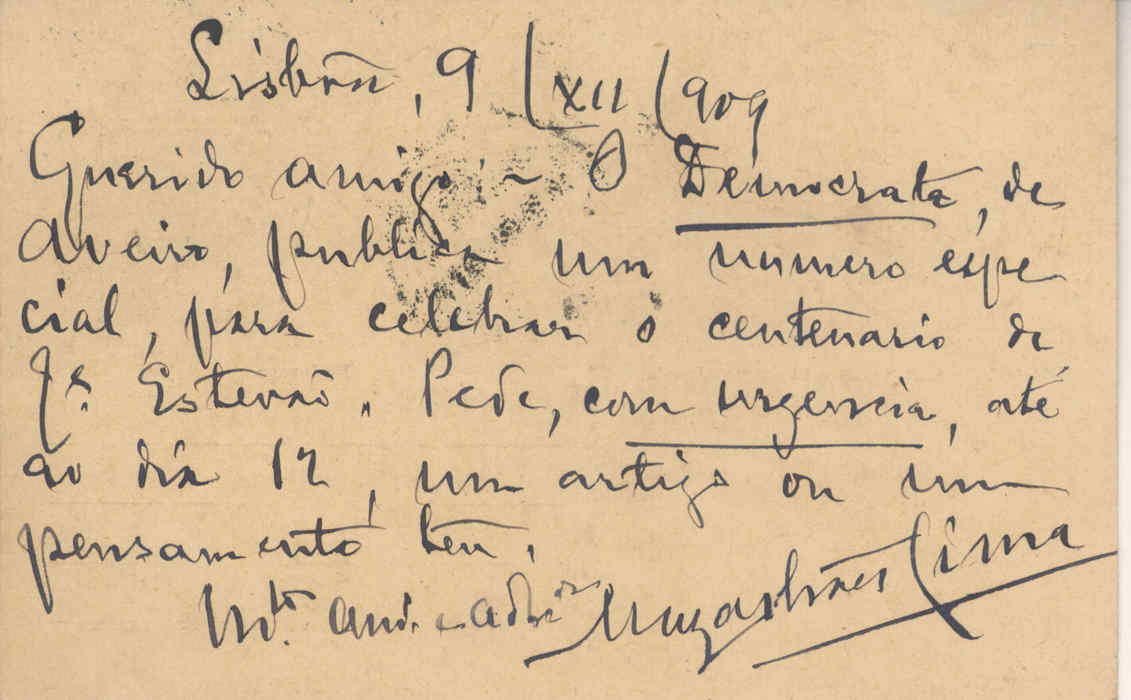 Lisbôa, 9/XII/909
Querido amigo: ~ O Democrata, de
Aveiro, publica um numero espe
cial, para celebrar o centenario de
J.e Estevão. Pede, com urgencia, até
ao dia 12, um artigo ou um
pensamento teu.
M.to am.o e ad.or Magalhães Lima